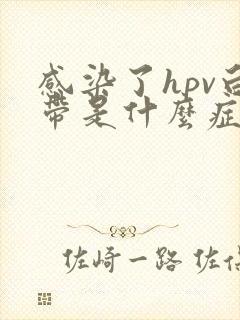 感染了hpv
帶是什麼症
佐崎一路 佐